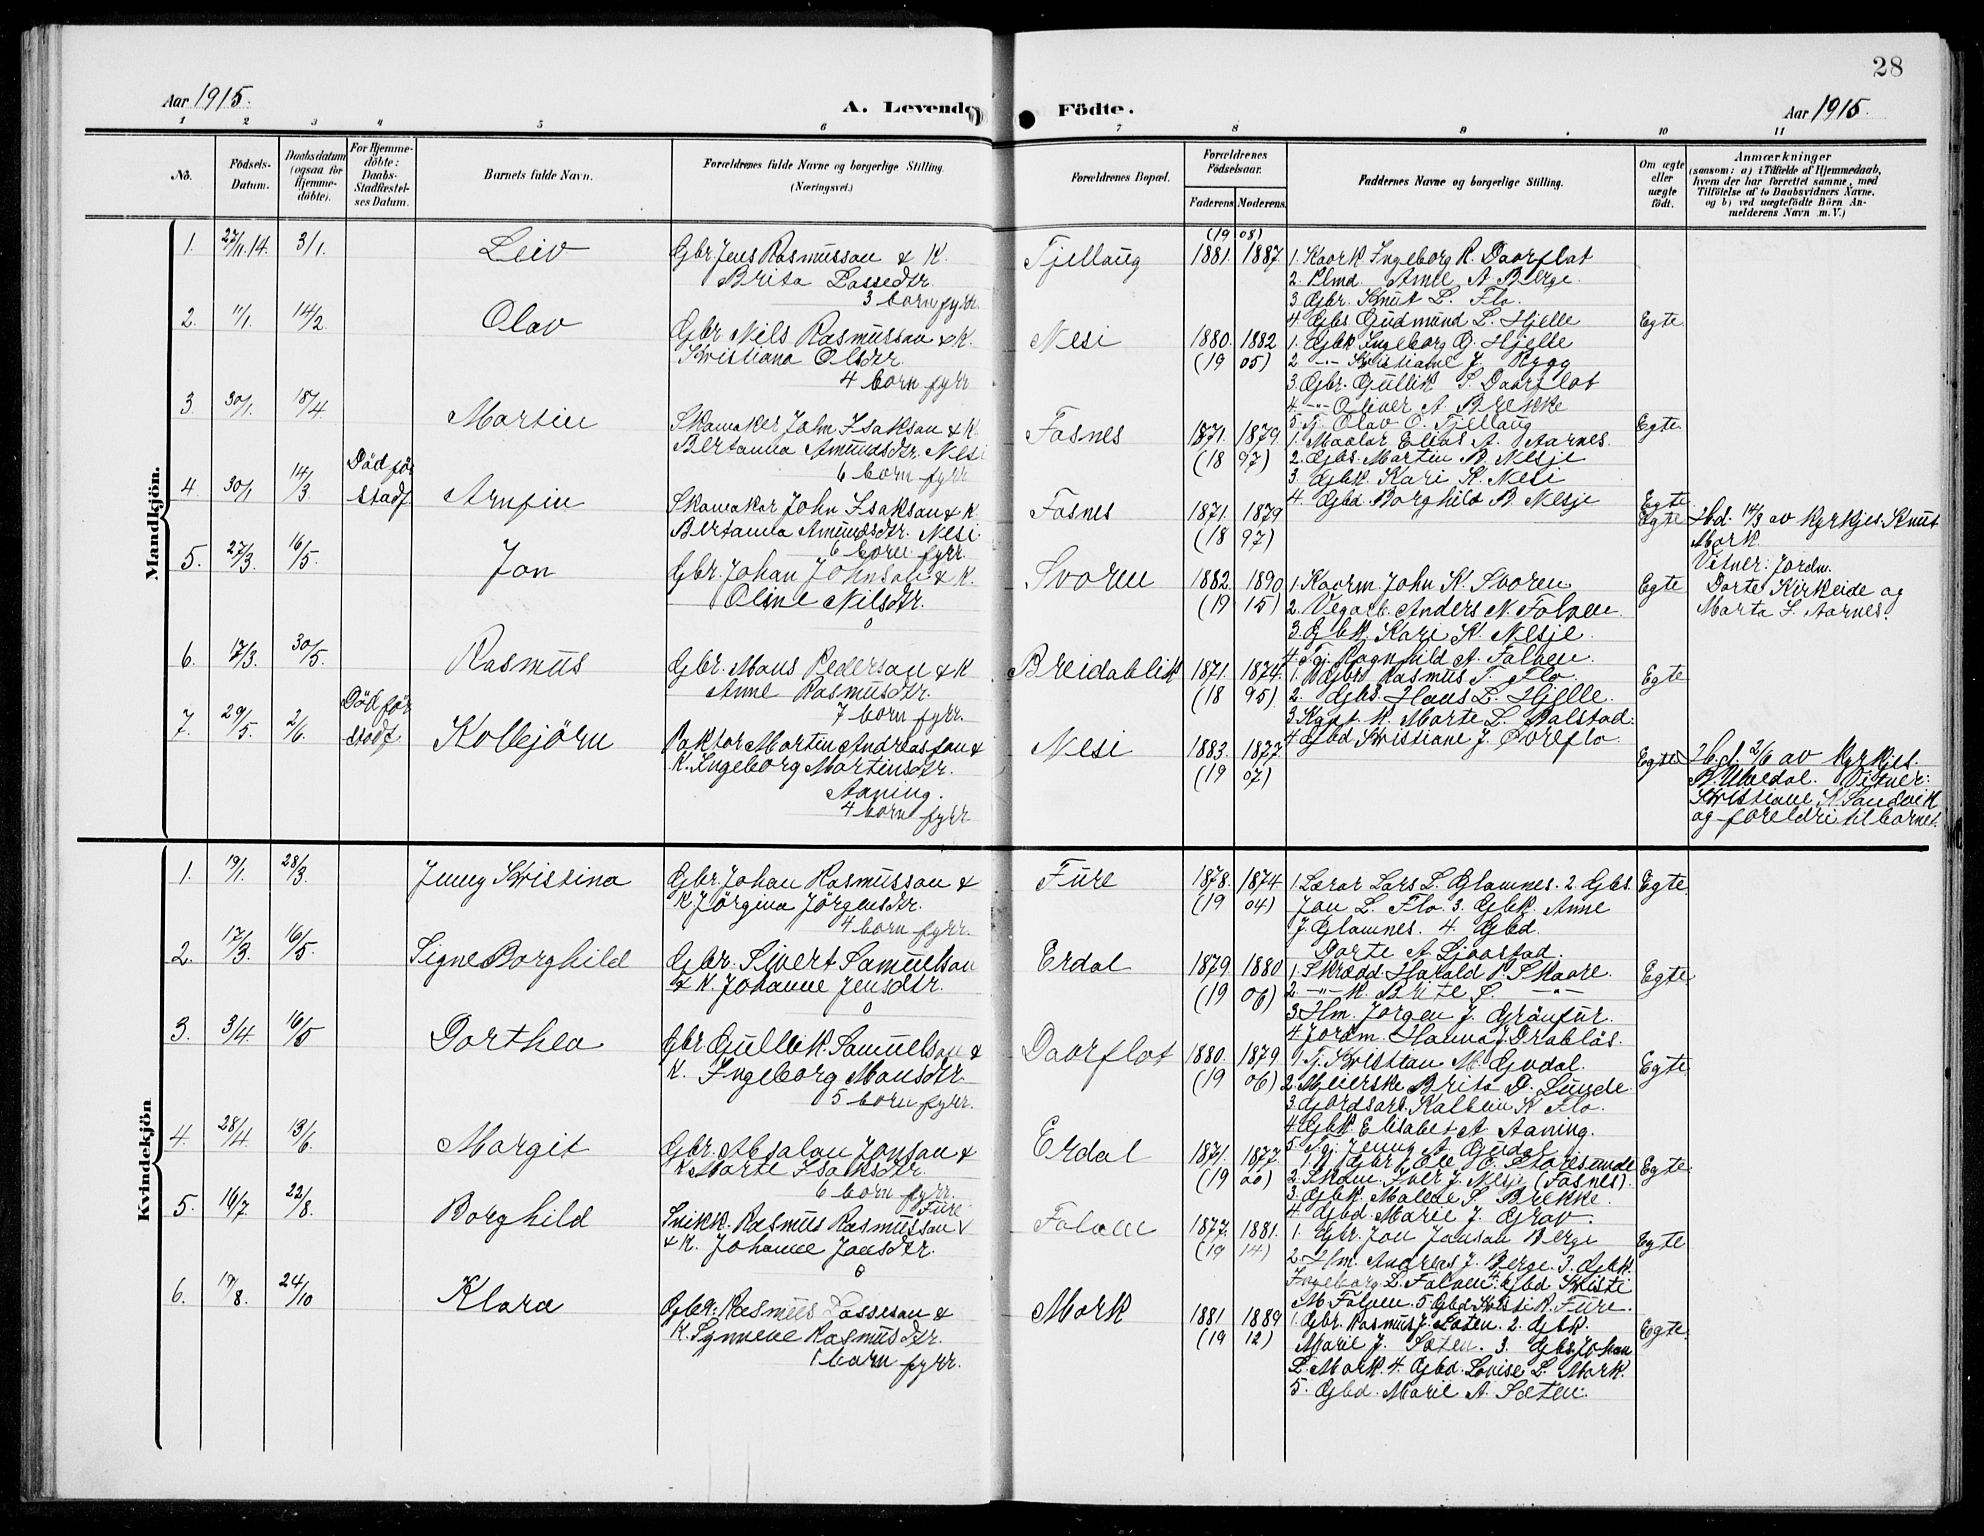 28
Aar 1915.
A. Levende
Födte.
Aar 1915.
1 2 3 4 5 6 7 8 9 10 11
No.
Födsels-
Datum.
Daabsdatum
(ogsaa for
Hjemme-
döbte).
For Hjemme-
döbte:
Daabs-
Stadfæstel-
ses Datum.
Barnets fulde Navn.
Forældrenes fulde Navne og borgerlige Stilling.
(Næringsvei.)
Forældrenes Bopæl.
Forældrenes
Födselsaar.
Faderens.
Moderens.
Faddernes Navne og borgerlige Stilling.
Om ægte
eller
uægte
födt.
Anmærkninger
(saasom: a) i Tilfælde af Hjemmedaab,
hvem der har forrettet samme, med
Tilföielse af to Daabsvidners Navne.
og b) ved uægtefödte Börn An-
melderens Navn m. V.)
Mandkjön.
1. 27/11.14. 3/1. Leiv
Gbr. Jens Rasmusson & K.
Brita Lassedtr.
3 born fyrr.
Tjellaug
(19 08)
1881. 1887.
1. Kaark Ingeborg R. Daarflot
2. Plmd. Arne A. Berge.
3. Gbr. Knut L. Flo.
4. Gbs. Gudmund L. Hjelle
Egte
2. 1/1. 14/2 Olav
Gbr. Nils Rasmusson & K.
Kristiana Olsdtr.
4 born fyrr
Nesi
1880. 1882
(19 05)
1. Gbk Ingeborg G. Hjelle
2. -"- Kristiane J. Rygg
3. Gbr. Gullik S. Daarflot
4. -"- Oliver A. Brekke
5. Tj. Olav O. Tjellaug
Egte
3. 30/1. 18/4 Martin
Skomaker John Isakson & K.
Bertanna Amundsdtr. Nesi
6 born fyrr
Fosnes
1871. 1879
(18 97)
1. Maalar Elias A. Aarnes.
2. Gbs. Martin B. Nesje
3. Gbk. Kari K. Nesi
4. Gbd Borghild B. Nesje
Egte
4. 30/1 14/3 Död før
stadf. Arnfin
Skomakar John Isakson & K.
Bertanna Amundsdtr. Nesi.
6 born fyrr.
Fosnes
1871. 1879
(18 97)
Egte
Hbd. 14/3 av kyrkjes. Knut
Mork.
Vitner: Jordm.
Dorte Kirkeide og
Marta S. Aarnes.
5. 27/3. 16/5 Jon
Gbr. Johan Johnson & K.
Oline Nilsdtr.
0
Svoren
1882. 1890
(19 15)
1. Kaarm. John K. Svoren
2. Vegarb. Anders N. Folven
3. Gbk. Kari K. Nesje.
4. Tj. Ragnhild A. Folven.
Egte
6. 17/3. 30/5. Rasmus
Gbr. Mons Pederson & K
Anne Rasmusdtr.
7 born fyrr.
Breidablik
1871. 1874.
(18 95)
1. Gbr Rasmus T. Flo.
2. Gbs. Hans L. Hjelle.
3. Kapt. K. Marte L. Balstad.
4. Gbd Kristiane J. Øvreflo
Egte
7. 29/5. 2/6. Död før
stadf. Kolbjörn
Faktor Martin Andreasson &
K. Ingeborg Martinsdtr.
Aaning.
4 born fyrr
Nesi
1883. 1877.
(19 07)
Egte
Hbd. 2/6 av kyrkjes.
Vitner:
Kristiane K. Sandvik
og foreldri til barnet.
Kvindekjön
1. 19/1. 28/3. Jenny Kristina
Gbr. Johan Rasmusson &
K Jørgina Jørgensdtr.
4 born fyrr.
Fure
1878. 1874
(19 04)
1. Lærar Lars L. Glomnes. 2. Gbs.
Jon L. Flo. 3. Gbk. Anne
J. Glomnes. 4. Gbd.
Dorte A. Ljoostad.
Egte
2. 17/3. 16/5. Signe Borghild
Gbr. Sivert Samuelson
& K. Johanne Jensdtr.
0
Erdal
1879. 1880
(19 06)
1. Skrædd. Harald P. Skaare.
2. -"- K. Brite S. -"-
3. Hm. Jørgen J. Grönfur.
4. Jordm. Hanna J. Drabløs.
Egte.
3. 3/4. 16/5 Dorthea
Gbr. Gullik Samuelson &
K. Ingeborg Monsdtr.
5 born fyrr.
Daarflot
1880. 1879
(19 06)
1. Tj. Kristian M. Gudal.
2. Meierske Brita D. Lunde
3. Gardsarb. Kalbein K. Flo.
4. Gbk Elisabet A. Aaning.
5. Tj. Jenny A. Gudal.
Egte.
4. 28/4. 13/6. Margit
Gbr. Absalon Jonson &
K Marte Isaksdtr.
6 born fyrr.
Erdal
1871. 1877.
(19 00)
1. Gbr. Ole E. Storesunde
2. Skom. Iver J. Nesje (Fosnes).
3. Gbk. Malene S. Brekke.
4. Gbd. Marie J. Grov.
Egte
5. 16/7. 22/8. Borghild
Snikk. Rasmus Rasmusson Fure
& K. Johanne Jonsdtr.
0
Folven
1877. 1881.
(19 14)
1. Gbr. Jon Jonson Berge
2. Hm. Andreas J. Berge. 3. Gbk.
Ingeborg L. Folven. 4. Gbd Kristi
M. Folven. 5. Gbd Kristi R. Fure.
Egte
6. 19/8. 24/10 Klara
Gbr. Rasmus Lasseson &
K. Synneve Rasmusdtr.
1 barn fyrr.
Mork
1881 1889
(19 12)
1. Gbr. Rasmus J. Sæten. 2. Gbk.
Marie J. Sæten. 3. Gbs Johan
L. Mork. 4. Gbd. Lovise L. Mork.
5. Gbd. Marie A. Sæten.
Egte.